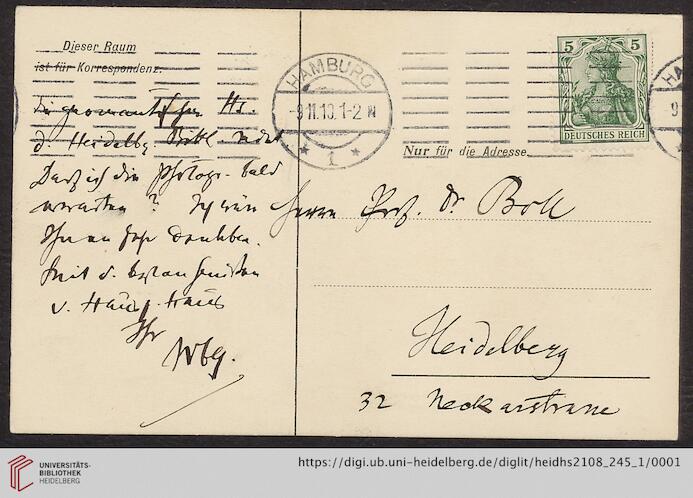 Dieser Raum
ist für Korrespondenz.
HAMBURG
-9.11.10.1-2 N
* 1 *
5 5
DEUTSCHES REICH
Nur für die Adresse
geomantischen Hs.
d. Heidelbg Bibl.
Darf ich die Photogr. bald
erwarten? Ich wäre
Ihnen sehr dankbar.
Mit d. besten Grüßen
v. Haus z. Haus
Ihr
Wbg.
Herrn Prof. Dr. Boll
Heidelberg
32 Neckarstrasse
UNIVERSITÄTS-
BIBLIOTHEK
HEIDELBERG
https://digi.ub.uni-heidelberg.de/diglit/heidhs2108_245_1/0001